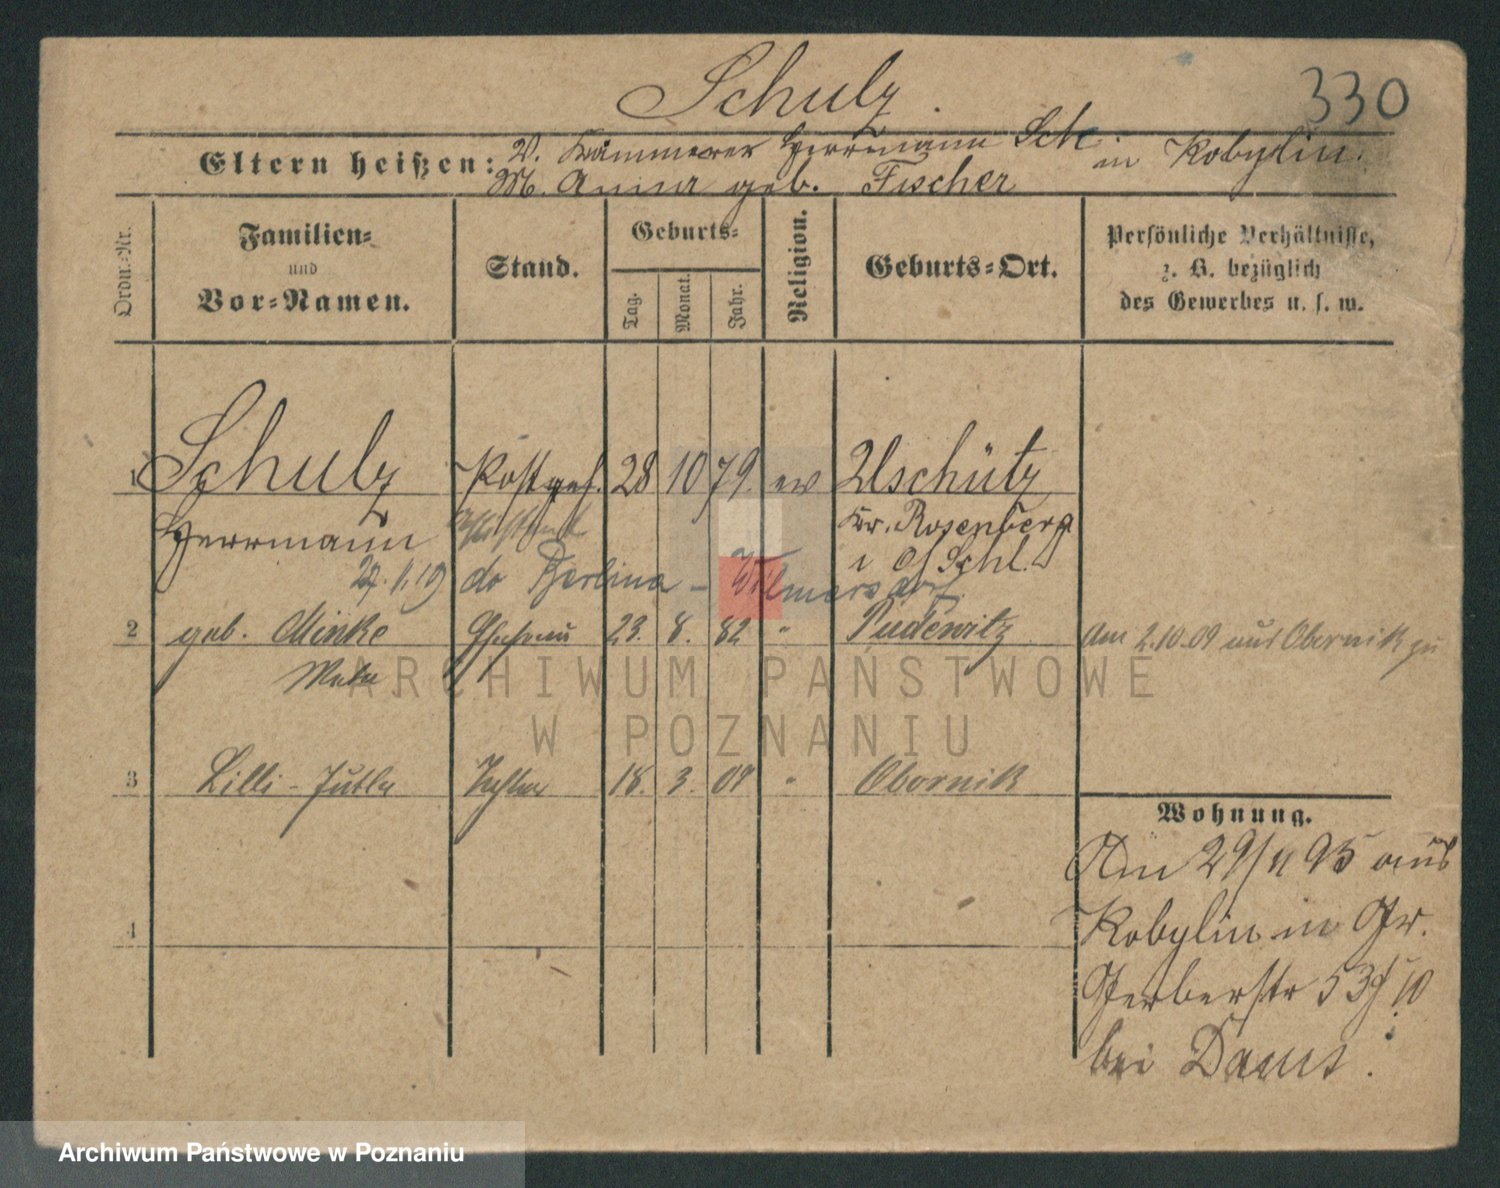 Schulz.
330
Eltern heißen: V. Kämmerer Herrmann Sch. in Kobylin.
M. Anna geb. Fischer
Ordn.-Nr.
Familien- und Vor-Namen.
Stand.
Geburts-
Tag.
Monat.
Jahr.
Religion.
Geburts-Ort.
Persönliche Verhältnisse, z. B. bezüglich des Gewerbes u. s. w.
1 Schulz Postgeh. 28 10 79. ev Uschütz
Herrmann Assistent Kr. Rosenberg
i O/Schl.
27.1.19 do Berlina - Wilmersdorf
2 geb. Minke Ehefrau 23. 8. 82 " Pudewitz Am 2.10.09 aus Obornik zu
Meta
3 Lilli - Jutta Tochter 18. 3. 09 " Obornik
4
Wohnung.
Am 29/11 95 aus
Kobylin in Gr.
Gerberstr 53 10
bei Dams.
ARCHIWUM PAŃSTWOWE
W POZNANIU
Archiwum Państwowe w Poznaniu